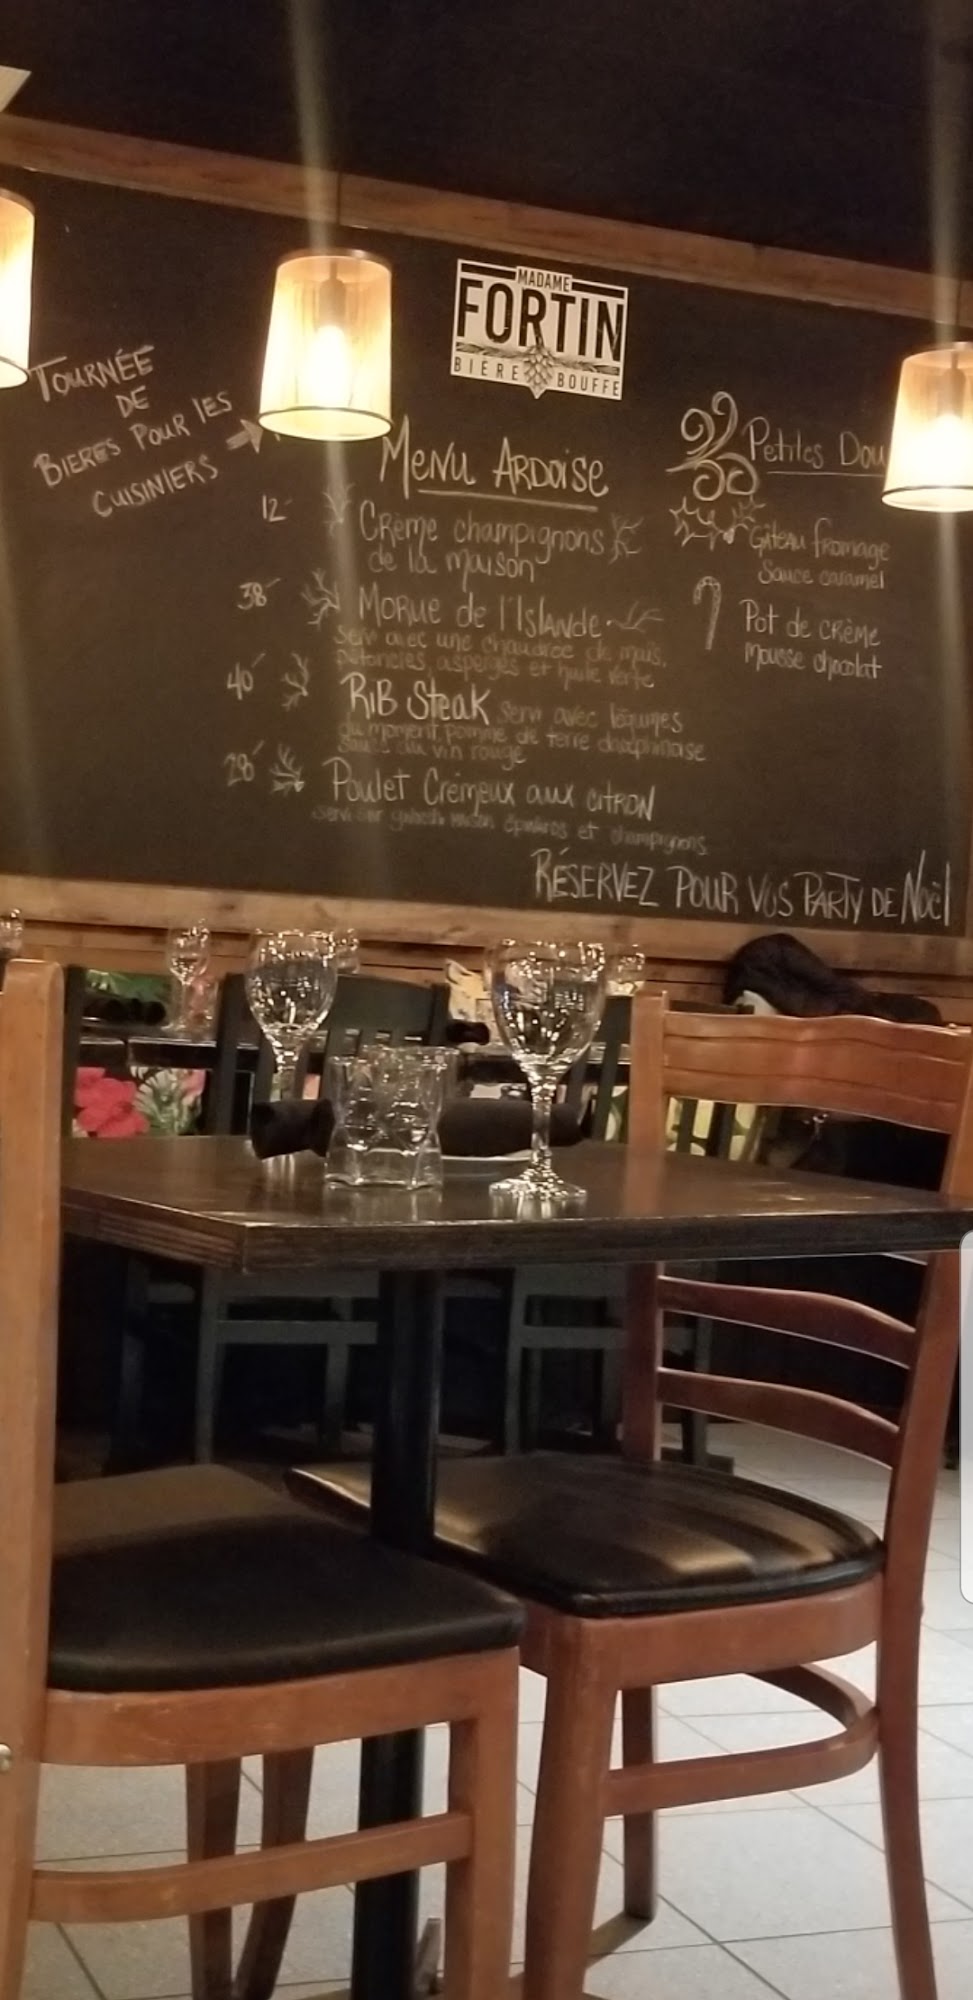 MADAME
FORTIN
BIÈRE BOUFFE
TOURNÉE
DE
BIERES POUR LES
CUISINIERS
MENU ARDOISE
12-
Crème champignons
de la maison
38-
MORUE de l'ISLANDE
servi avec une chaudrée de maïs,
pétoncles, asperges et huile verte
40-
RIB Steak servi avec légumes
du moment, pomme de terre dauphinoise
sauce au vin rouge
28-
Poulet Crémeux aux citron
servi sur gnocchi maison épinards et champignons
Petites Dou
Gâteau fromage
Sauce caramel
Pot de crème
mousse chocolat
RÉSERVEZ POUR VOS PARTY DE Noël